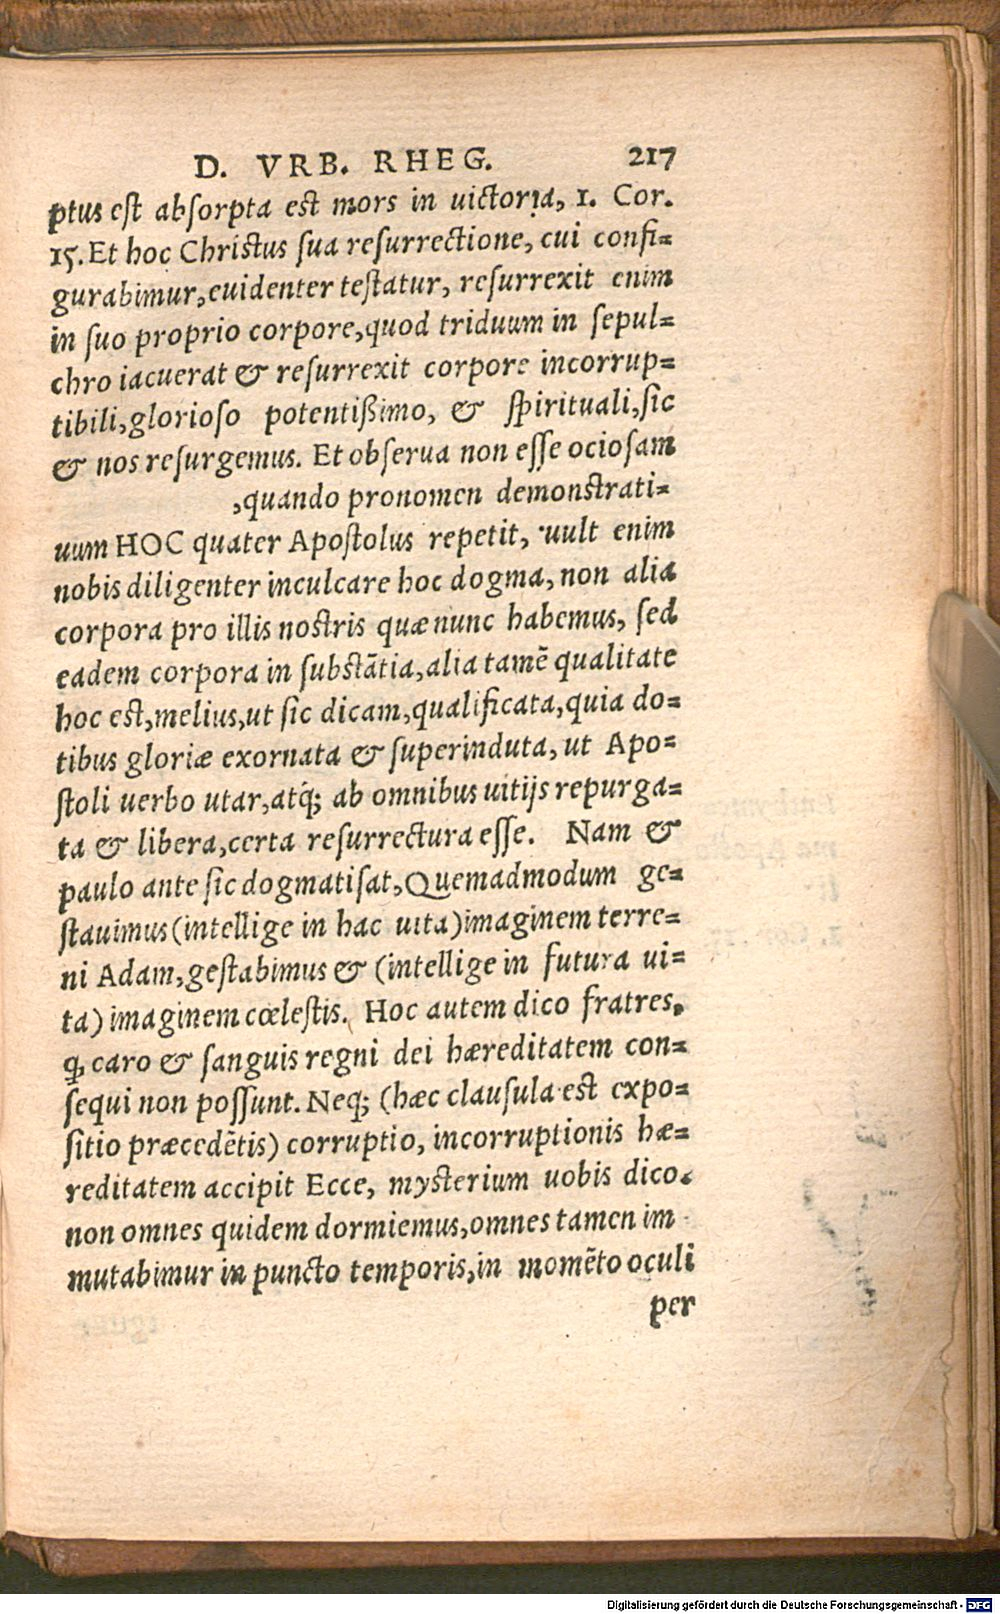 D. VRB. RHEG. 217
ptus est absorpta est mors in uictoria, 1. Cor.
15. Et hoc Christus sua resurrectione, cui confi=
gurabimur, euidenter testatur, resurrexit enim
in suo proprio corpore, quod triduum in sepul=
chro iacuerat & resurrexit corpore incorrup=
tibili, glorioso potentißimo, & spirituali, sic
& nos resurgemus. Et obserua non esse ociosam
, quando pronomen demonstrati=
uum HOC quater Apostolus repetit, uult enim
nobis diligenter inculcare hoc dogma, non alia
corpora pro illis nostris quæ nunc habemus, sed
eadem corpora in substãtia, alia tamẽ qualitate
hoc est, melius, ut sic dicam, qualificata, quia do=
tibus gloriæ exornata & superinduta, ut Apo=
stoli uerbo utar, atq́; ab omnibus uitijs repurga=
ta & libera, certa resurrectura esse. Nam &
paulo ante sic dogmatisat, Quemadmodum ge=
stauimus (intellige in hac uita) imaginem terre=
ni Adam, gestabimus & (intellige in futura ui=
ta) imaginem cœlestis. Hoc autem dico fratres,
ꝙ caro & sanguis regni dei hæreditatem con=
sequi non possunt. Neq; (hæc clausula est expo=
sitio præcedẽtis) corruptio, incorruptionis hæ=
reditatem accipit Ecce, mysterium uobis dico.
non omnes quidem dormiemus, omnes tamen im
mutabimur in puncto temporis, in momẽto oculi
per
Digitalisierung gefördert durch die Deutsche Forschungsgemeinschaft - DFG